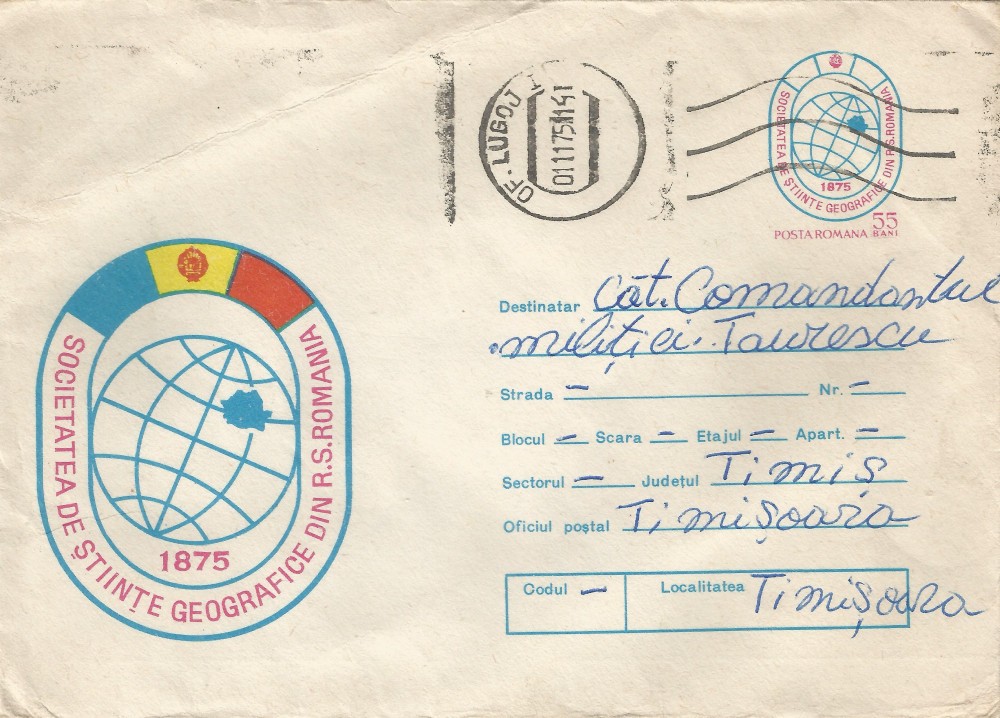 OF. LUGOJ 1
01 11 75 14
SOCIETATEA DE ȘTIINȚE GEOGRAFICE DIN R.S.ROMANIA
1875
55
POSTA ROMANA BANI
Destinatar Căt. Comandantul
miliției. Taurescu
Strada - Nr. -
Blocul - Scara - Etajul - Apart. -
Sectorul - Județul Timiș
Oficiul poștal Timișoara
Codul - Localitatea Timișoara
SOCIETATEA DE ȘTIINȚE GEOGRAFICE DIN R.S.ROMANIA
1875